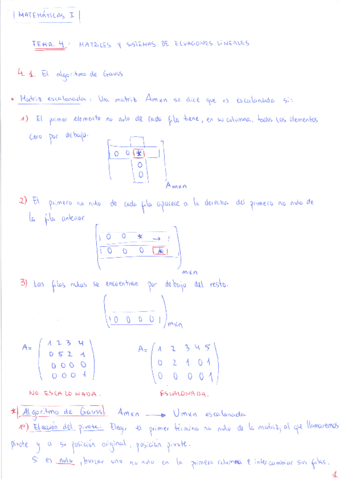 MATEMÁTICAS I
TEMA 4: MATRICES Y SISTEMAS DE ECUACIONES LINEALES
4.1. El algoritmo de Gauss
* Matriz escalonada: Una matriz Amxn se dice que es escalonada si:
1) El primer elemento no nulo de cada fila tiene, en su columna, todos los elementos
cero por debajo.
0 0 *
0
0
Amxn
2) El primero no nulo de cada fila aparece a la derecha del primero no nulo de
la fila anterior
0 0 * →
0 0 0 *
mxn
3) Las filas nulas se encuentran por debajo del resto.
0 0 0 0
mxn
A= 1 2 3 4
0 5 2 1
0 0 0 0
0 0 0 1
A= 1 2 3 4 5
0 2 1 0 1
0 0 0 0 1
NO ESCALONADA. ESCALONADA.
* Algoritmo de Gauss Amxn → Umxn escalonada
1º) Elección del pivote: Elegir el primer término no nulo de la matriz, al que llamaremos
pivote y a su posición original, posición pivote.
Si es nulo, buscar uno no nulo en la primera columna e intercambiar sus filas.
1